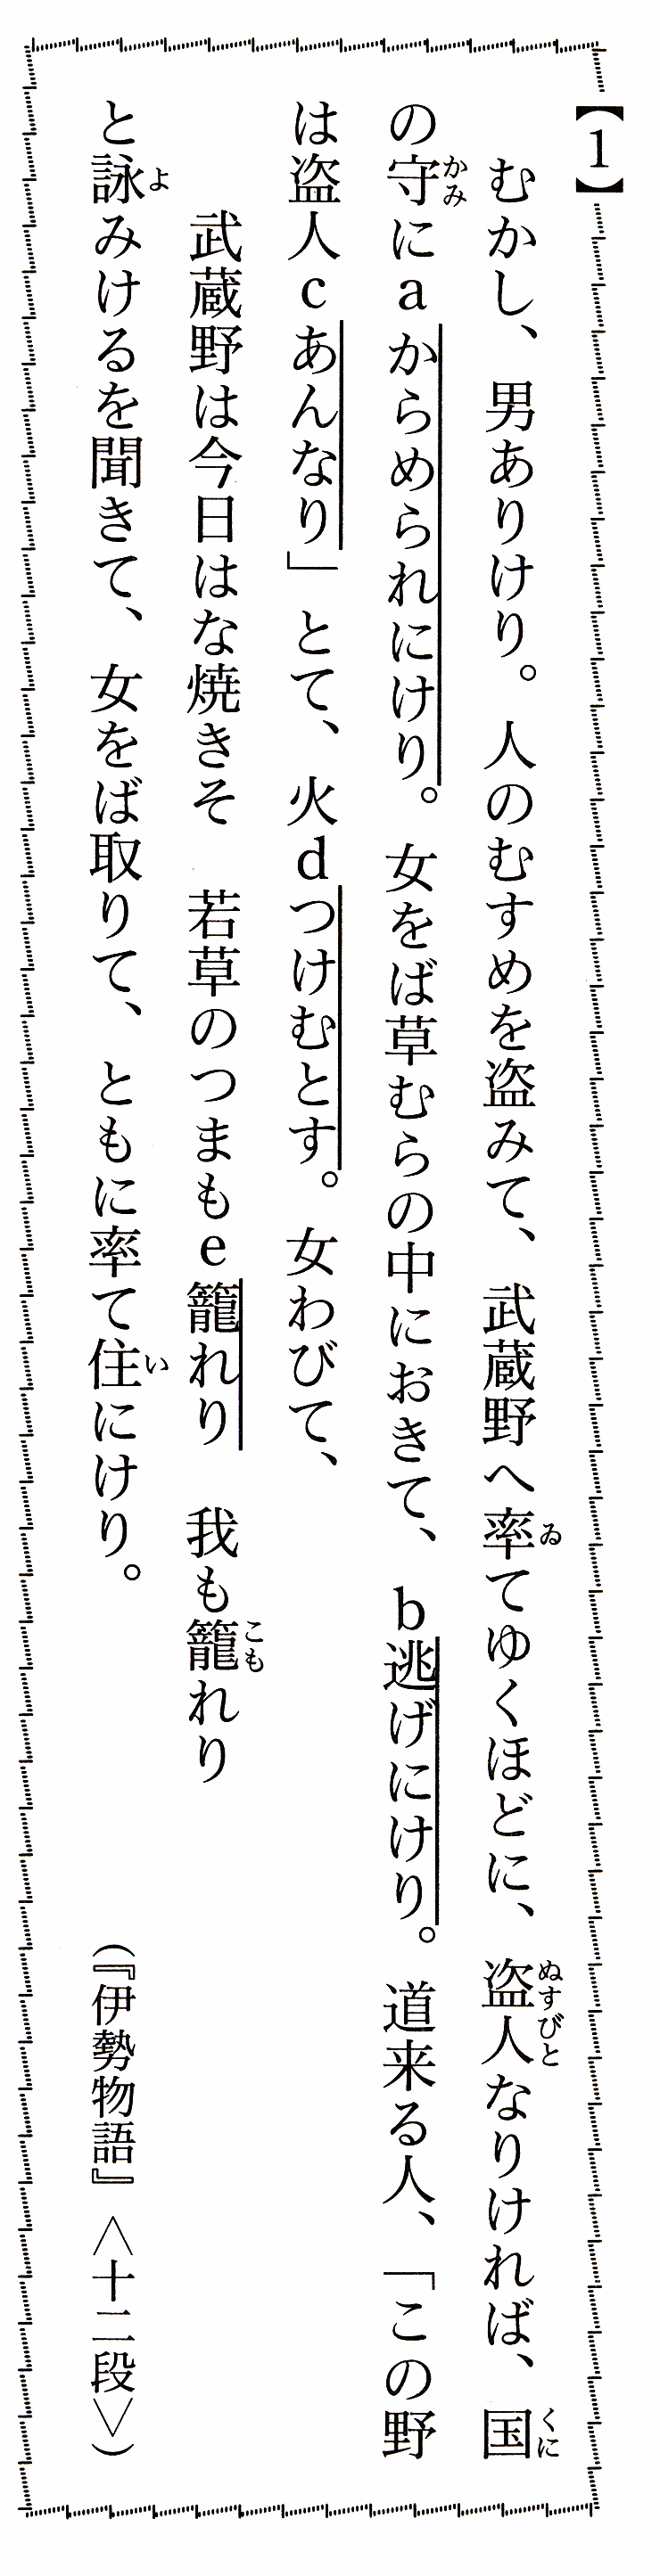 【1】
むかし、男ありけり。人のむすめを盗みて、武蔵野へ率てゆくほどに、盗人なりければ、国
の守にaからめられにけり。女をば草むらの中におきて、b逃げにけり。道来る人、「この野
は盗人cあんなり」とて、火dつけむとす。女わびて、
武蔵野は今日はな焼きそ　若草のつまもe籠れり　我も籠れり
と詠みけるを聞きて、女をば取りて、ともに率て住にけり。
（『伊勢物語』〈十二段〉）